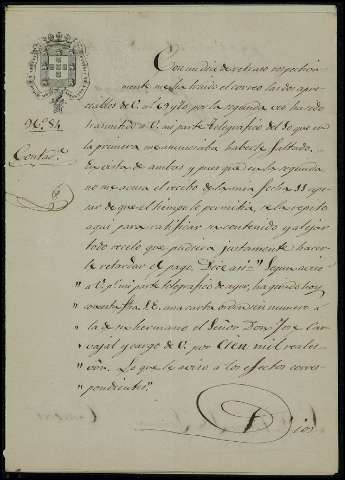 Con un dia de retraso respectiva-
mente me ha traido el correo las dos apre-
ciables de V. al 29 y 30, por la segunda veo ha sido
trasmitido a V. mi parte telegrafico del 30 que en
Nº 84
la primera me anunciaba haberle faltado.
Contad.ª
En vista de ambas y pues que en la segunda
no me acusa el recibo de la mia fecha
de que el tiempo lo permitia, se la repito
aqui para ratificar su contenido y alejar
todo recelo que pudiera justamente hacer-
le retardar el pago. Dice asi: "Segun aviso
" a V. p.r mi parte telegrafico de ayer, ha girado hoy
" con esta fha. una carta orden sin numero a
" la de su hermano el Señor Don Jose Car-
" vajal y cargo de V. por Cien mil reales
" von. Lo que le aviso a los efectos corres-
pondientes".
Dios